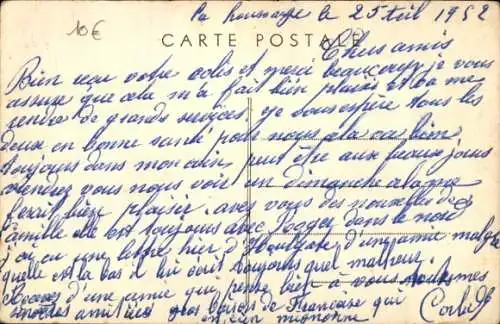 10€
La le 25 1952
CARTE POSTALE
Chers amis
Bien reçu votre colis et merci beaucoup je vous
assure que cela m'a fait bien plaisir et ça me
rendre de grands services. je vous espère tous les
deux en bonne santé pour nous cela va bien
toujours dans mon coin, peut être aux beaux jours
viendrez vous nous voir un dimanche
ferait bien plaisir. avez vous des nouvelles de
famille elle est toujours avec Roger dans le nord
j'ai eu une lettre hier d' d'une amie malgré
quelle est la bas il lui écrit toujours quel malheur.
Recevez d'une amie qui pense bien à vous
amitiés gros baisers de Francoise qui
est bien mignonne